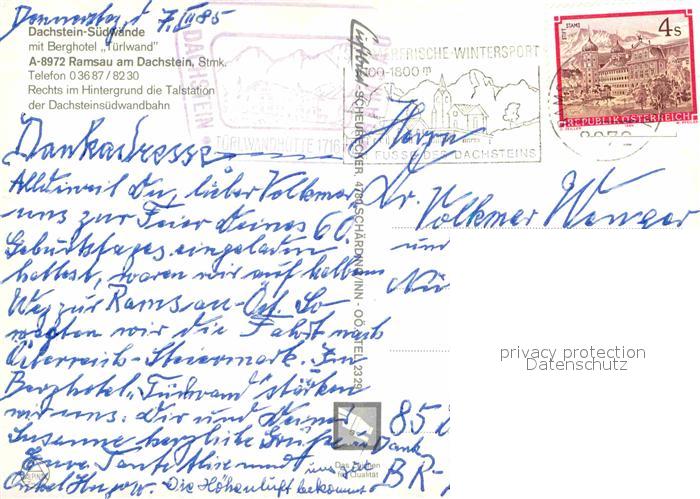 Donnerstag, d. 7.III.85
Dachstein-Südwände
mit Berghotel „Türlwand"
A-8972 Ramsau am Dachstein, Stmk.
Telefon 0 36 87 / 82 30
Rechts im Hintergrund die Talstation
der Dachsteinsüdwandbahn
Dankadresse
Alldieweil Du, lieber Volkmar,
uns zur Feier Deines 60.
Geburtstages eingeladen
hattest, waren wir auf halbem
Weg zur Ramsau-Öst. So
wagten wir die Fahrt nach
Österreich-Steiermark. Im
Berghotel „Türlwand" stärken
wir uns. Dir und Deiner
Susanne herzliche Grüße u. Dank
Eure Tante Alise und
Onkel Hugo. Die Höhenluft bekommt
uns gut
DACHSTEIN
TÜRLWANDHÜTTE 1716
SOMMERFRISCHE-WINTERSPORT
1100-1800 m
AM FUSSE DES DACHSTEINS
8972
STIFT STAMS
4 s
REPUBLIK ÖSTERREICH
SCHEUBECKER, 4780 SCHÄRDING/INN - OÖ., TEL. 2329
Herrn
Dr. Volkmar Wenger
und
85
BR-
Das Zeichen
für Qualität
privacy protection
Datenschutz